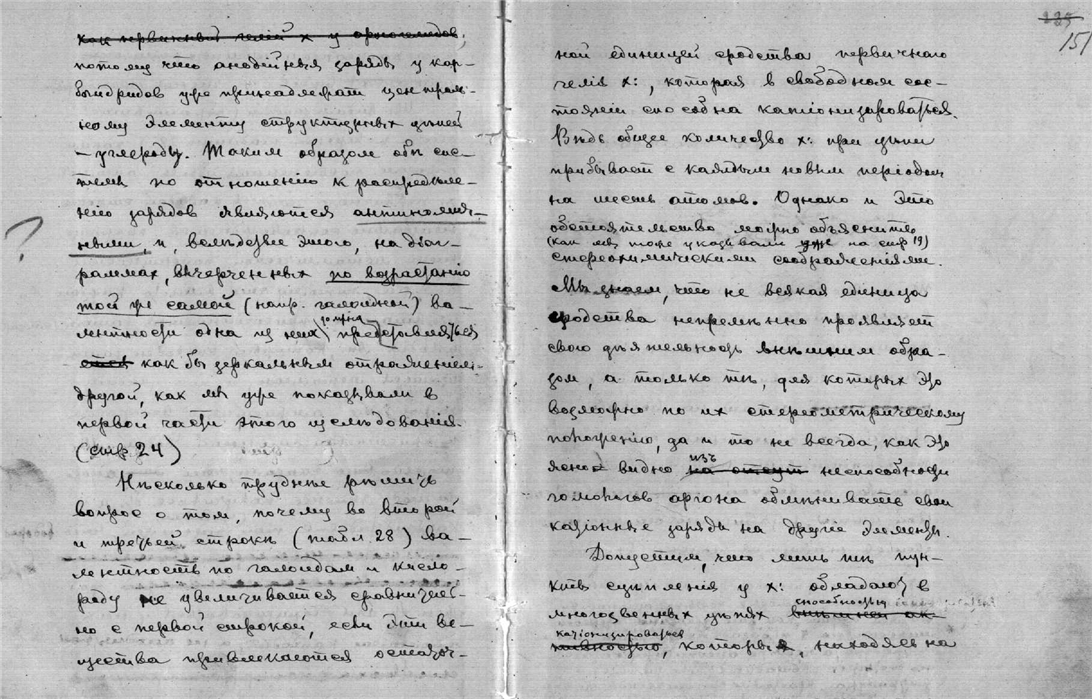 как первичной гелій x у аргоноидов,
потому что анодійныя заряды у кар-
быидридов уже принадлежат централь-
ному элементу структурных цѣпей
— углероду. Таким образом обѣ сис-
темы по отношенію к распредѣле-
нію зарядов являются антиномич-
ными, и, вслѣдствіе этого, на діаг-
раммах, вычерченных по возрастанію
той же самой (напр. галоидной) ва-
должна
лентности одна из них представляться
как бы зеркальным отраженіем
другой, как мы уже показывали в
первой части этого изслѣдованія.
(стр. 24)
Нѣсколько труднѣе рѣшить
вопрос о том, почему во второй
и третьей строкѣ (табл 28) ва-
лентность по галоидам и кисло-
роду не увеличивается сравнитель-
но с первой строкой, если эти ве-
щества привлекаются остаточ-
151
ной единицей сродства первичнаго
гелія x:, которая в свободном сос-
тояніи способна катіонизироваться.
Вѣдь общее количество x: при цѣпи
прибывает с каждым новым періодом
на шесть атомов. Однако и это
обстоятельство можно объяснить
(как мы тоже указывали уже на стр 19)
стереохимическими соображеніями.
Мы знаем, что не всякая единица
сродства непремѣнно проявляет
свою дѣятельность внѣшним обра-
зом, а только тѣ, для которых это
возможно по их стереометрическому
положенію, да и то не всегда, как это
изъ
ясно видно на неспособности
гомологов аргона обмѣнивать свои
катіонные заряды на другіе элементы.
Допустим, что лишь тѣ пун-
кты сцѣпленія у x: обладают в
способностью
многозвенных цѣпях внѣшней ак-
катіонизироваться
тивностью, которые, находясь на